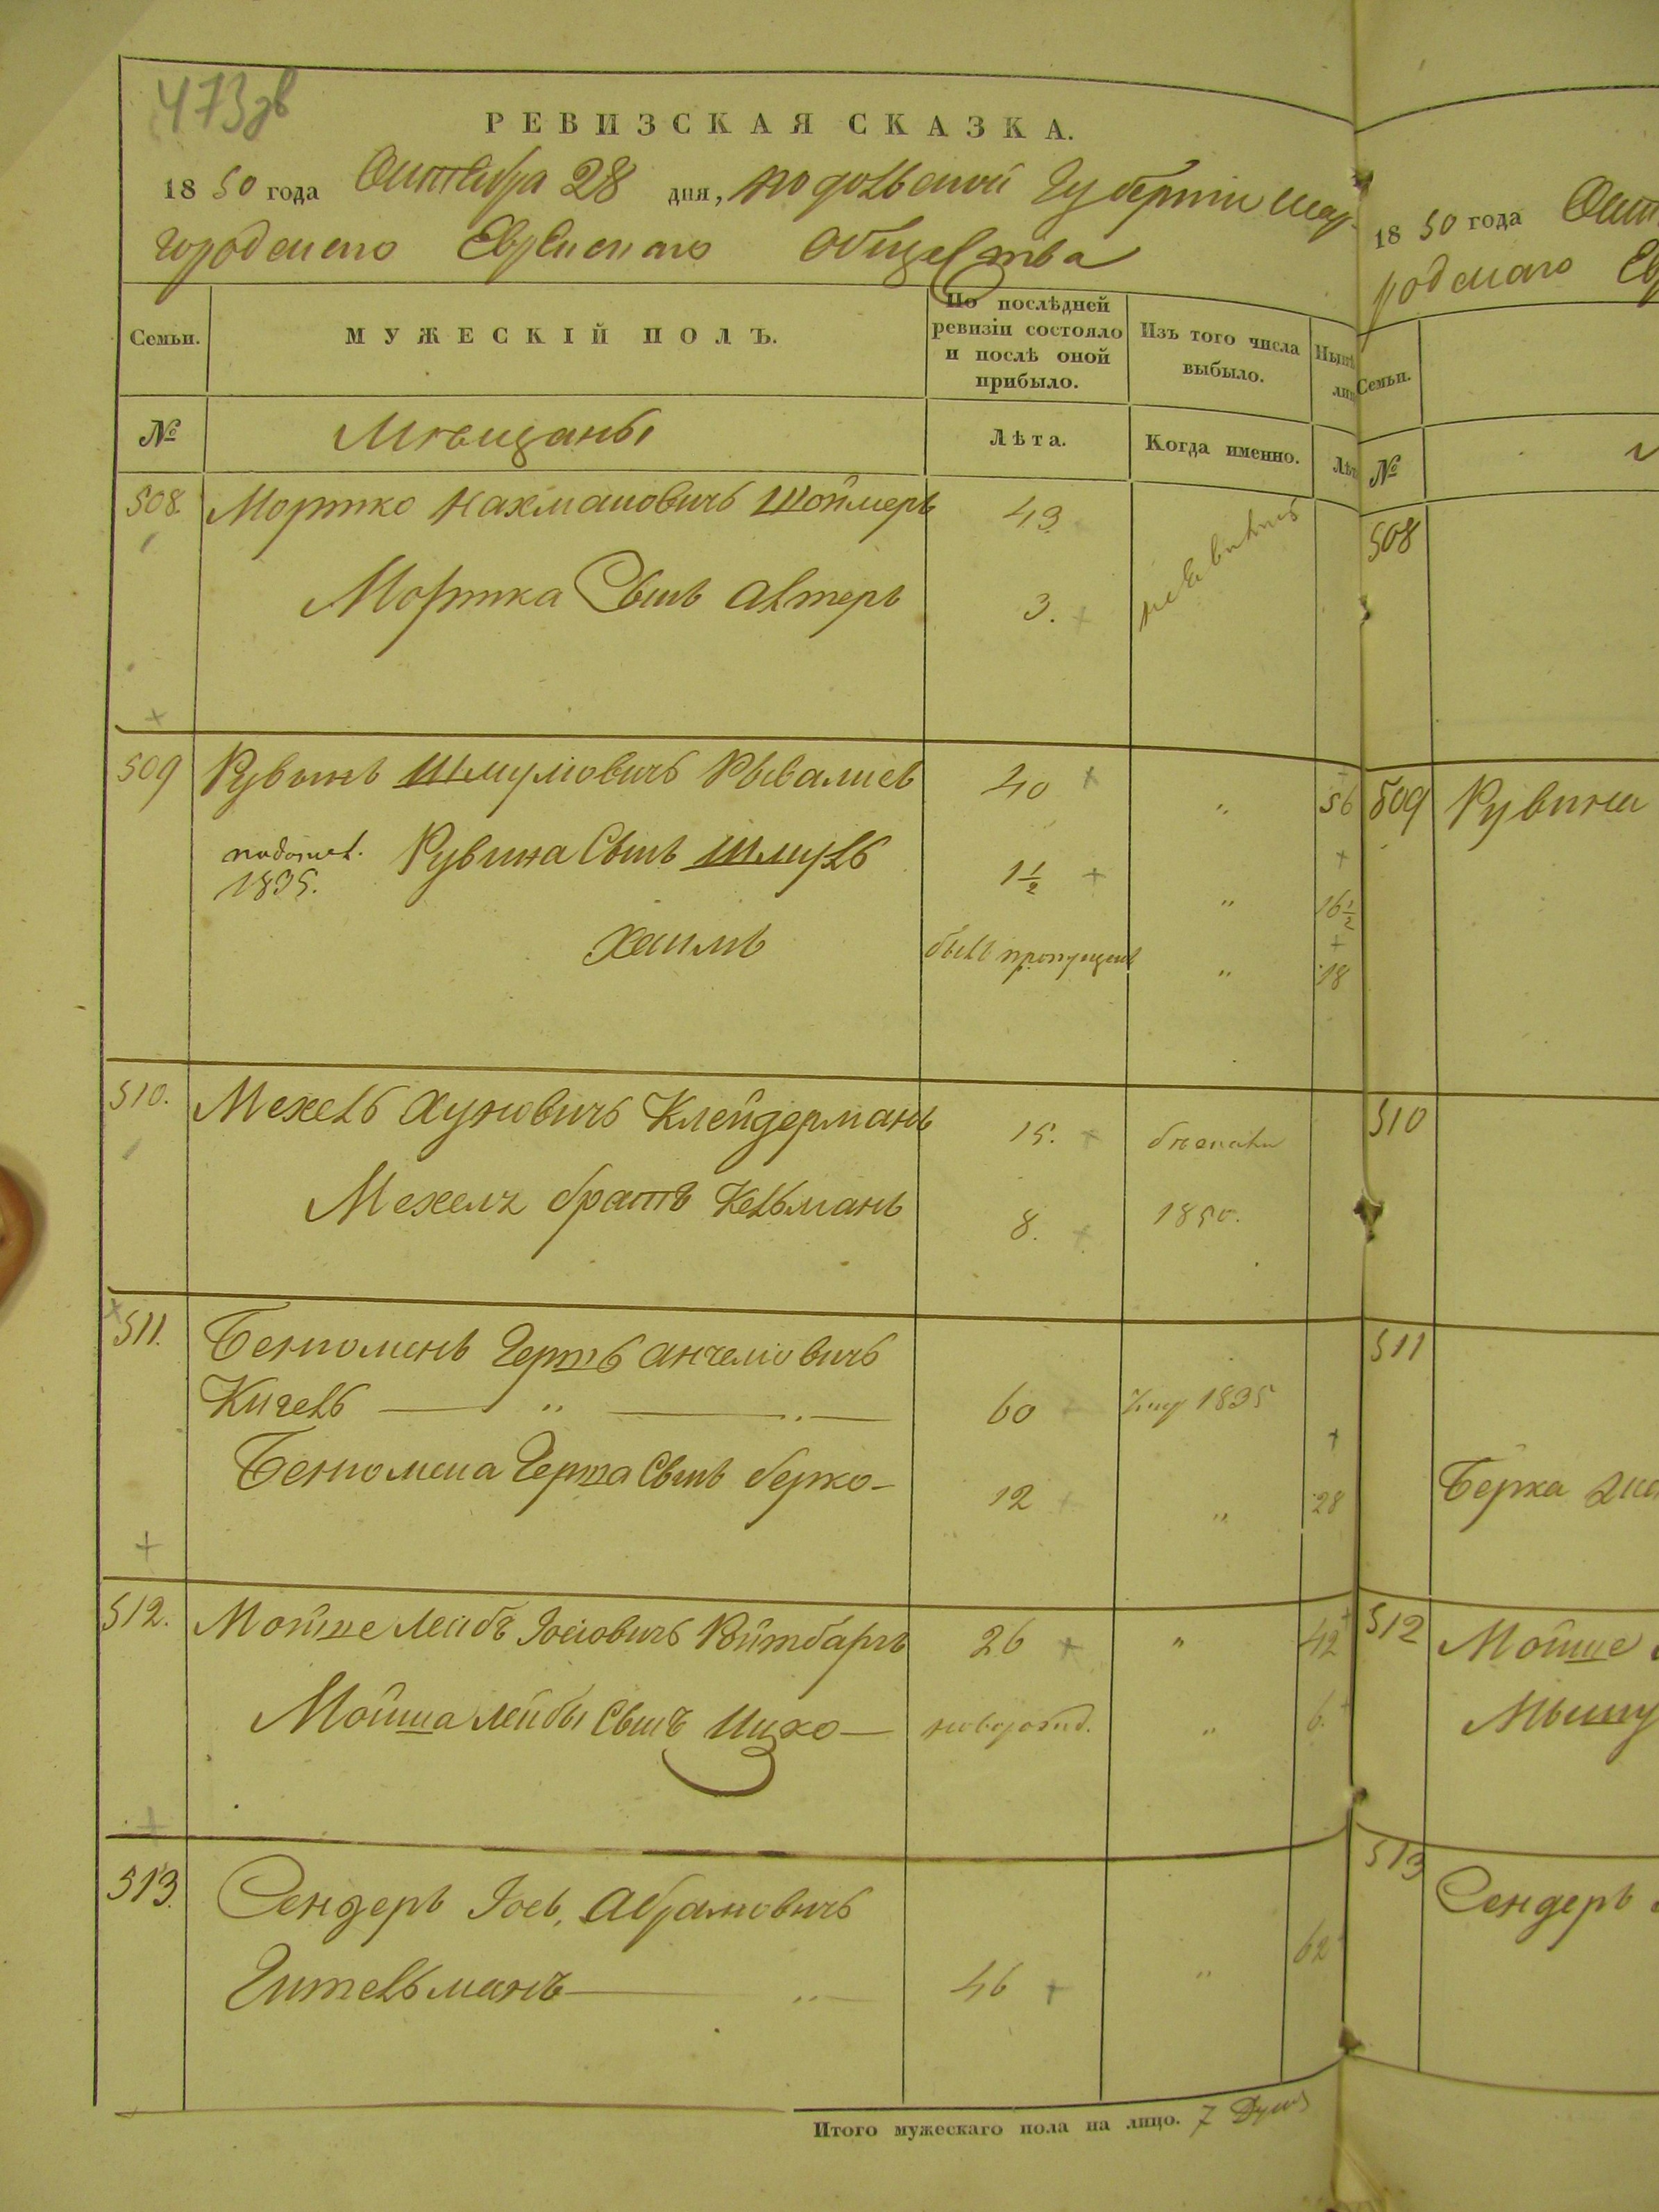 473 зв
РЕВИЗСКАЯ СКАЗКА.
1850 года Октября 28 дня, Подольской Губернии Шар-
городскаго Еврейскаго Общества
Семьи.
МУЖЕСКІЙ ПОЛЪ.
По послѣдней
ревизіи состояло
и послѣ оной
прибыло.
Изъ того числа
выбыло.
№
Мѣщаны
Лѣта.
Когда именно.
508. Мортко Нахмановичъ Шоймеръ 43
Мортка Сынъ Алтеръ 3.
509 Рувынъ Шмулiовичъ 40 " 56
1835. Рувина Сынъ Шмуль 1½ " 16½
Хаимъ былъ пропущенъ " 18
510. Мехель Хуновичъ Клейдерманъ 15. бѣжали
Мехеля братъ Кельманъ 8. 1850.
511. Беніоминъ Гершъ Анчелiовичъ
60 1835
Беніомина Герша Сынъ Берко 12 " 28
512. Мойше Лейбъ Іосіовичъ 26 " 42
Мойша Лейбы Сынъ Ицко новорожд. " 6.
513. Сендеръ Іос. Абрамовичъ
Гительманъ 46 " 62
Итого мужескаго пола на лицо. 7 Душъ
1850 года
родскаго
Семьи.
№
508
509 Рувина
510
511
Берка
512 Мойше
513 Сендеръ